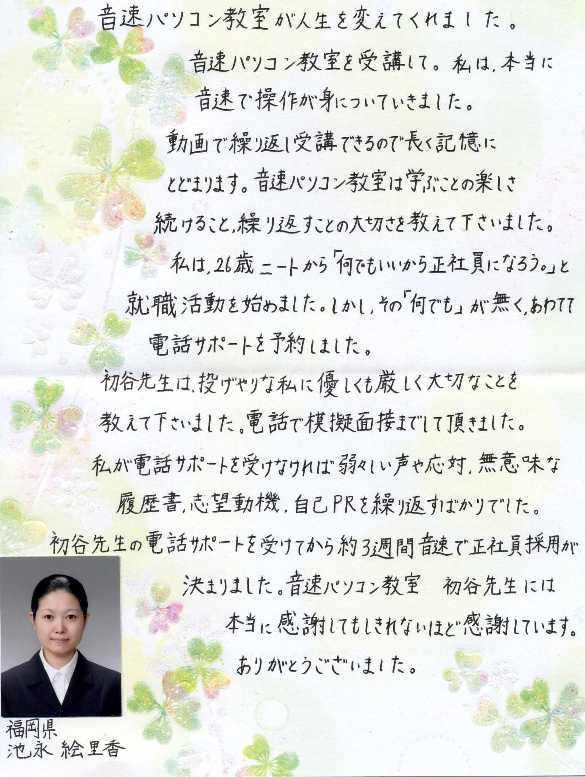 音速パソコン教室が人生を変えてくれました。
音速パソコン教室を受講して。私は、本当に
音速で操作が身についていきました。
動画で繰り返し受講できるので長く記憶に
とどまります。音速パソコン教室は学ぶことの楽しさ
続けること、繰り返すことの大切さを教えて下さいました。
私は、26歳ニートから「何でもいいから正社員になろう。」と
就職活動を始めました。しかし、その「何でも」が無く、あわてて
電話サポートを予約しました。
初谷先生は、投げやりな私に優しくも厳しく大切なことを
教えて下さいました。電話で模擬面接までして頂きました。
私が電話サポートを受けなければ弱々しい声や応対、無意味な
履歴書、志望動機、自己PRを繰り返すばかりでした。
初谷先生の電話サポートを受けてから約3週間音速で正社員採用が
決まりました。音速パソコン教室 初谷先生には
本当に感謝してもしきれないほど感謝しています。
ありがとうございました。
福岡県
池永 絵里香